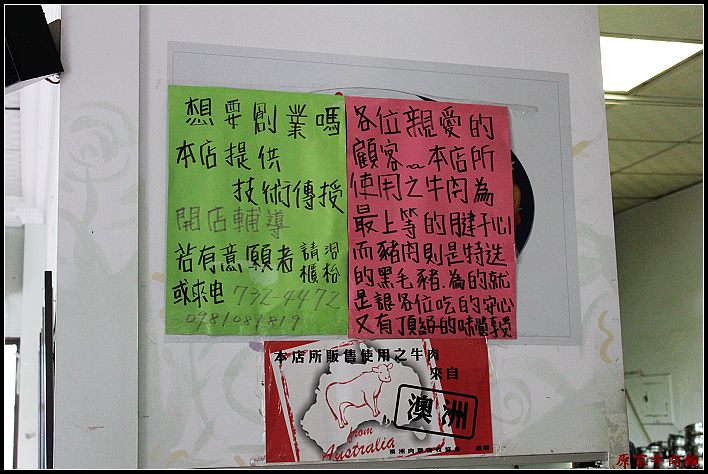 想要創業嗎
本店提供
技術傳授
開店輔導
若有意願者請洽櫃枱
或來电 732-4472
0981081819
各位親愛的
顧客~本店所
使用之牛肉為
最上等的腱子心
而豬肉則是特选
的黑毛豬.為的就
是讓各位吃的安心
又有頂級的味覺享受
本店所販售使用之牛肉
來自
澳洲
from
Australia